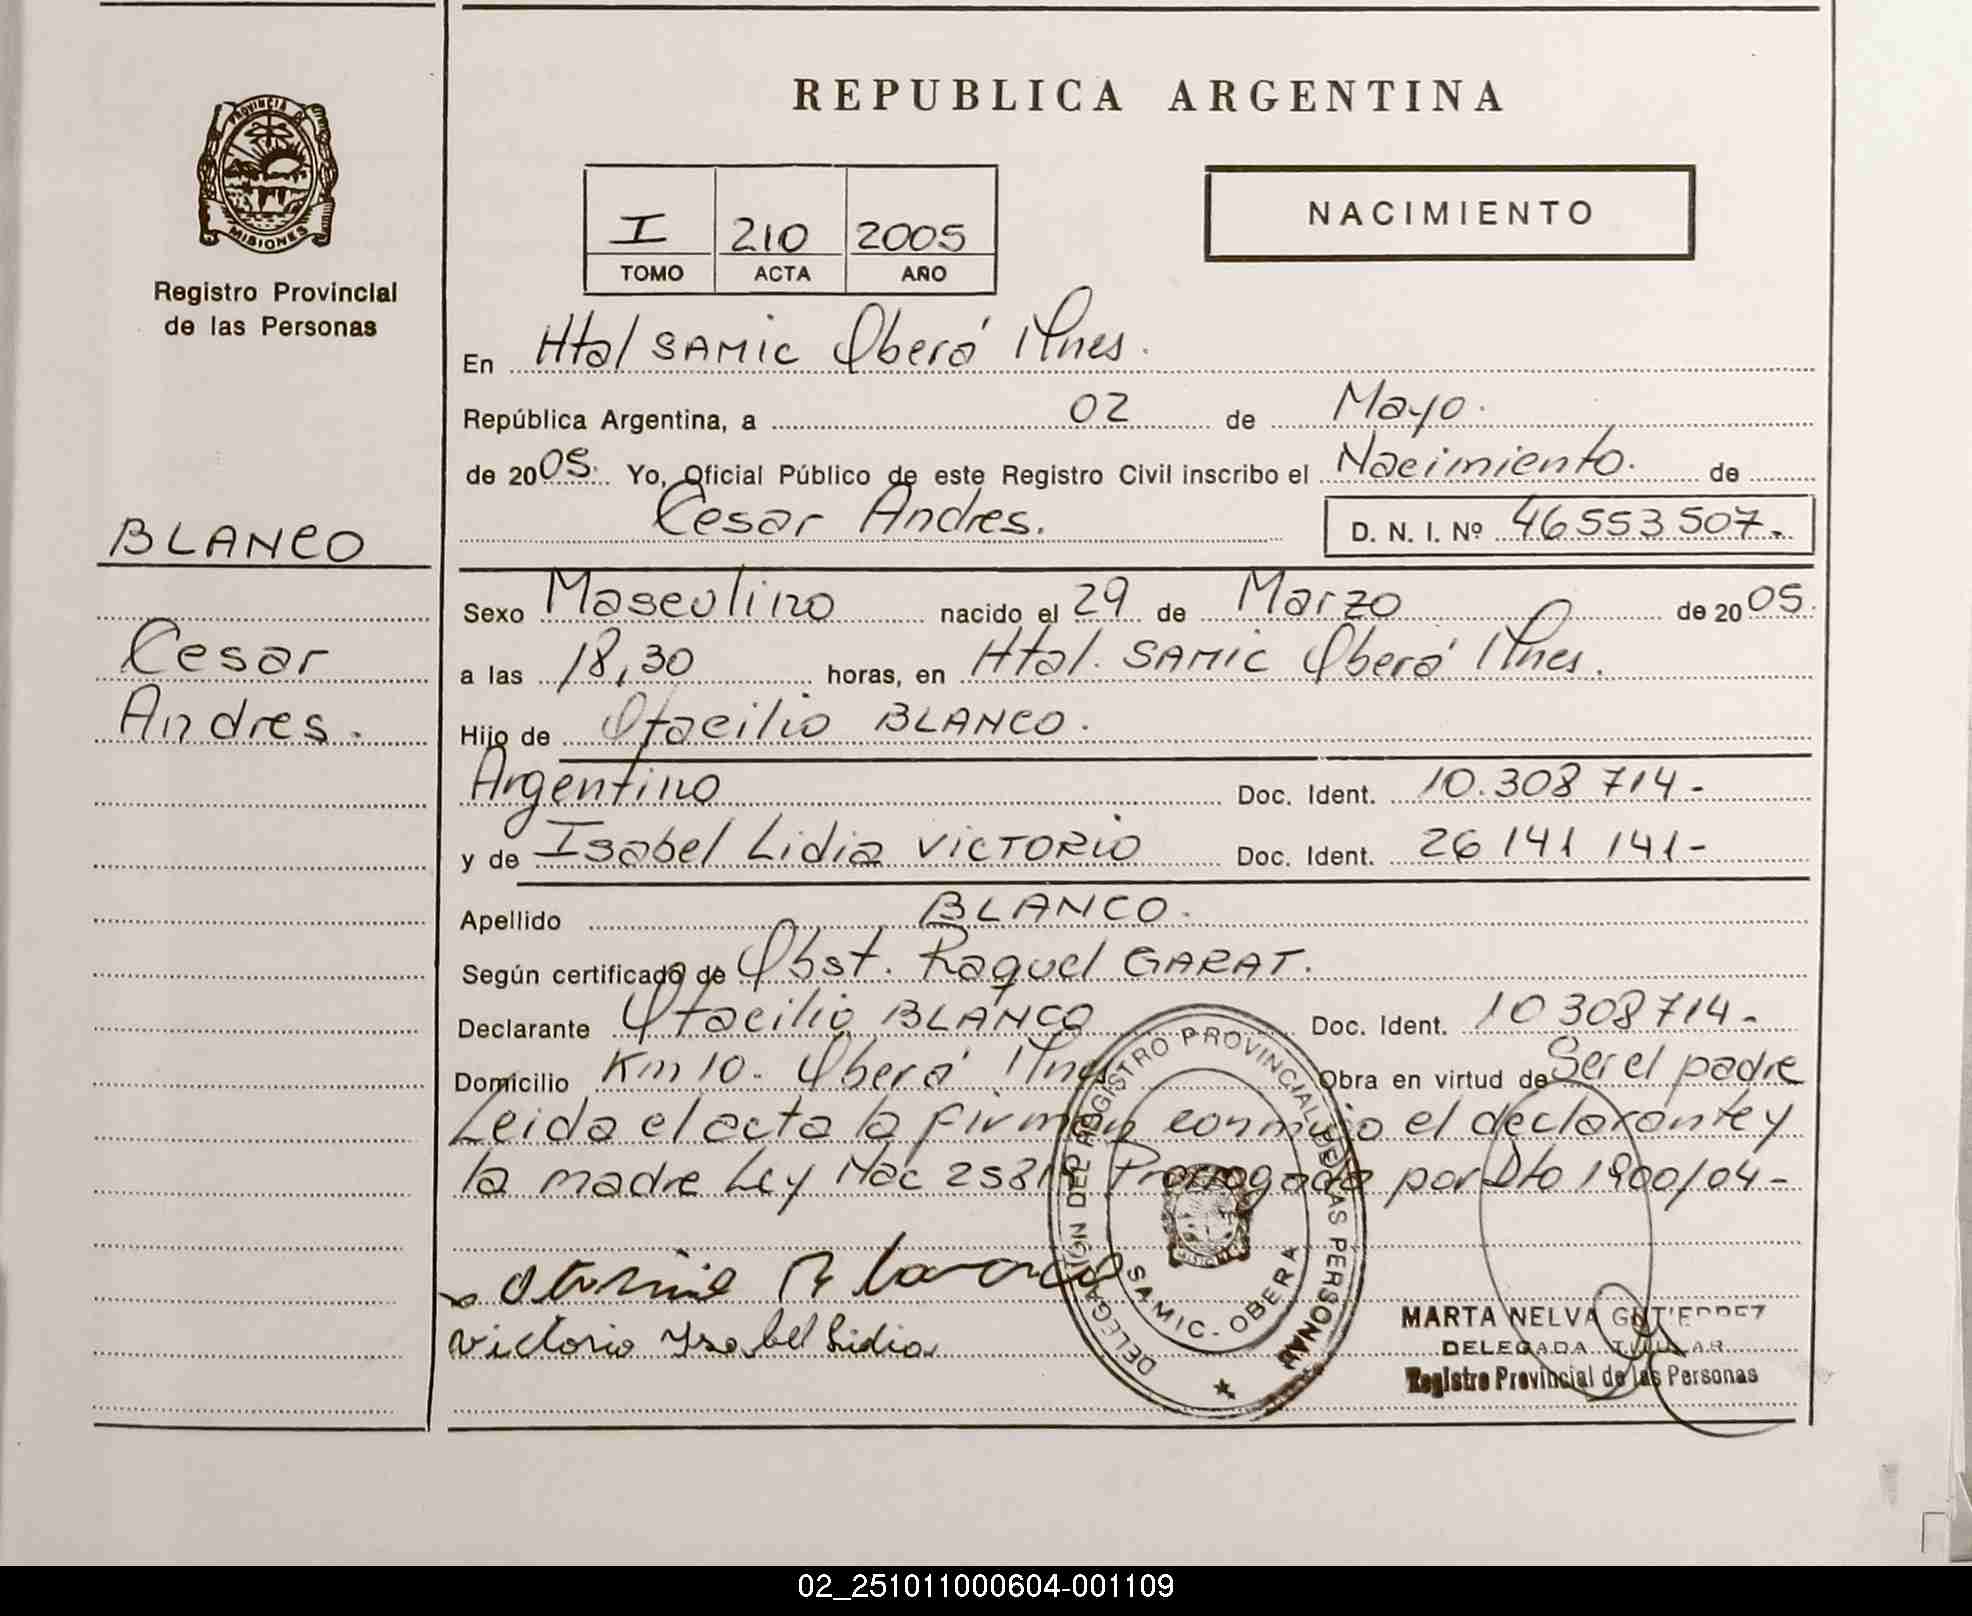 REPUBLICA ARGENTINA
PROVINCIA DE
MISIONES
Registro Provincial
de las Personas
I 210 2005
TOMO ACTA AÑO
NACIMIENTO
En Htal SAMIC Oberá Mnes.
República Argentina, a 02 de Mayo.
de 2005. Yo, Oficial Público de este Registro Civil inscribo el Nacimiento. de
Cesar Andres.
D. N. I. Nº 46553507-.
BLANCO
Cesar
Andres.
Sexo Masculino nacido el 29 de Marzo de 2005.
a las 18,30 horas, en Htal. SAMIC Oberá Mnes.
Hijo de Otacilio BLANCO.
Argentino Doc. Ident. 10.308 714-
y de Isabel Lidia VICTORIO Doc. Ident. 26 141 141-
Apellido BLANCO.
Según certificado de Obst. Raquel GARAT.
Declarante Otacilio BLANCO Doc. Ident. 10 308714-
Domicilio Km 10. Oberá Mnes Obra en virtud de Ser el padre
Leida el acta la firman conmigo el declarante y
la madre Ley Nac 25819 Prorrogada por Dto 1900/04-
Victorio Ysabel Lidia
DELEGACIÓN DEL REGISTRO PROVINCIAL DE LAS PERSONAS
SAMIC - OBERA
MARTA NELVA GUTIERREZ
DELEGADA TITULAR
Registro Provincial de las Personas
02_251011000604-001109